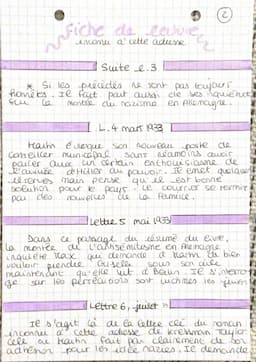 2
Fiche de lecture
inconnu à cette adresse
Suite L.3
* Si les préjudés ne sont pas toujours
honnêtes. Il fait part aussi de ses inquiétudes
sur la montée du nazisme en Allemagne.
L. 4 mars 1933
Martin évoque son nouveau poste de
conseiller municipal sans néanmoins avoir
parler avec un certain enthousiasme de
l'arrivée d'Hitler au pouvoir. Il émet quelques
réserves mais pense qu'il est bonne
solution pour le pays. Le courrier se termine
par des nouvelles de la famille.
Lettre 5 mai 1933
Dans ce passage du résumé du livre,
la montée de l'antisémitisme en Allemagne
inquiète Max qui demande à Martin de bien
vouloir prendre Griselle sous son aile
maintenant qu'elle vit à Berlin. Il s'interro
ge sur les persécutions dont victimes les juifs
Lettre 6, juillet
Il s'agit ici de la lettre clé du roman
inconnu à cette adresse de Kressman Taylor
celle où Martin fait part clairement de son
adhésion pour les idées nazies. Il demande